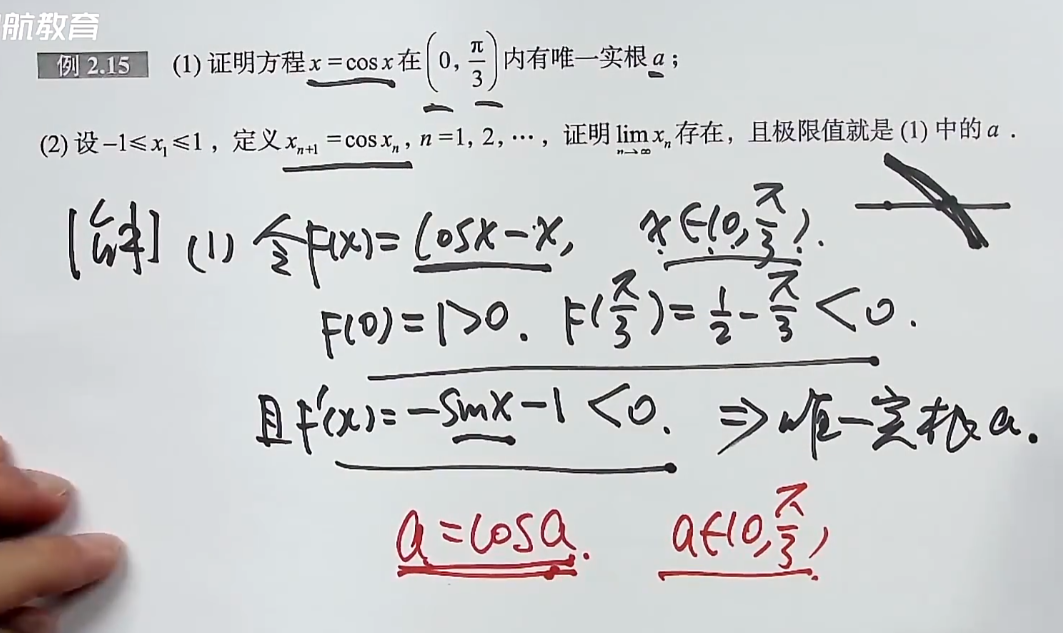 航教育
例 2.15 (1) 证明方程 x = cos x 在 (0, π/3) 内有唯一实根 a；
(2) 设 −1≤x₁≤1，定义 xₙ₊₁ = cos xₙ, n = 1, 2, ⋯，证明 lim_{n→∞} xₙ 存在，且极限值就是 (1) 中的 a．
[解] (1) 令F(x)= cosx−x, x∈(0, π/3).
F(0)=1>0. F(π/3)= 1/2 − π/3 <0.
且F'(x)=−sinx−1<0. ⇒ 唯一实根a.
a=cosa. a∈(0, π/3)